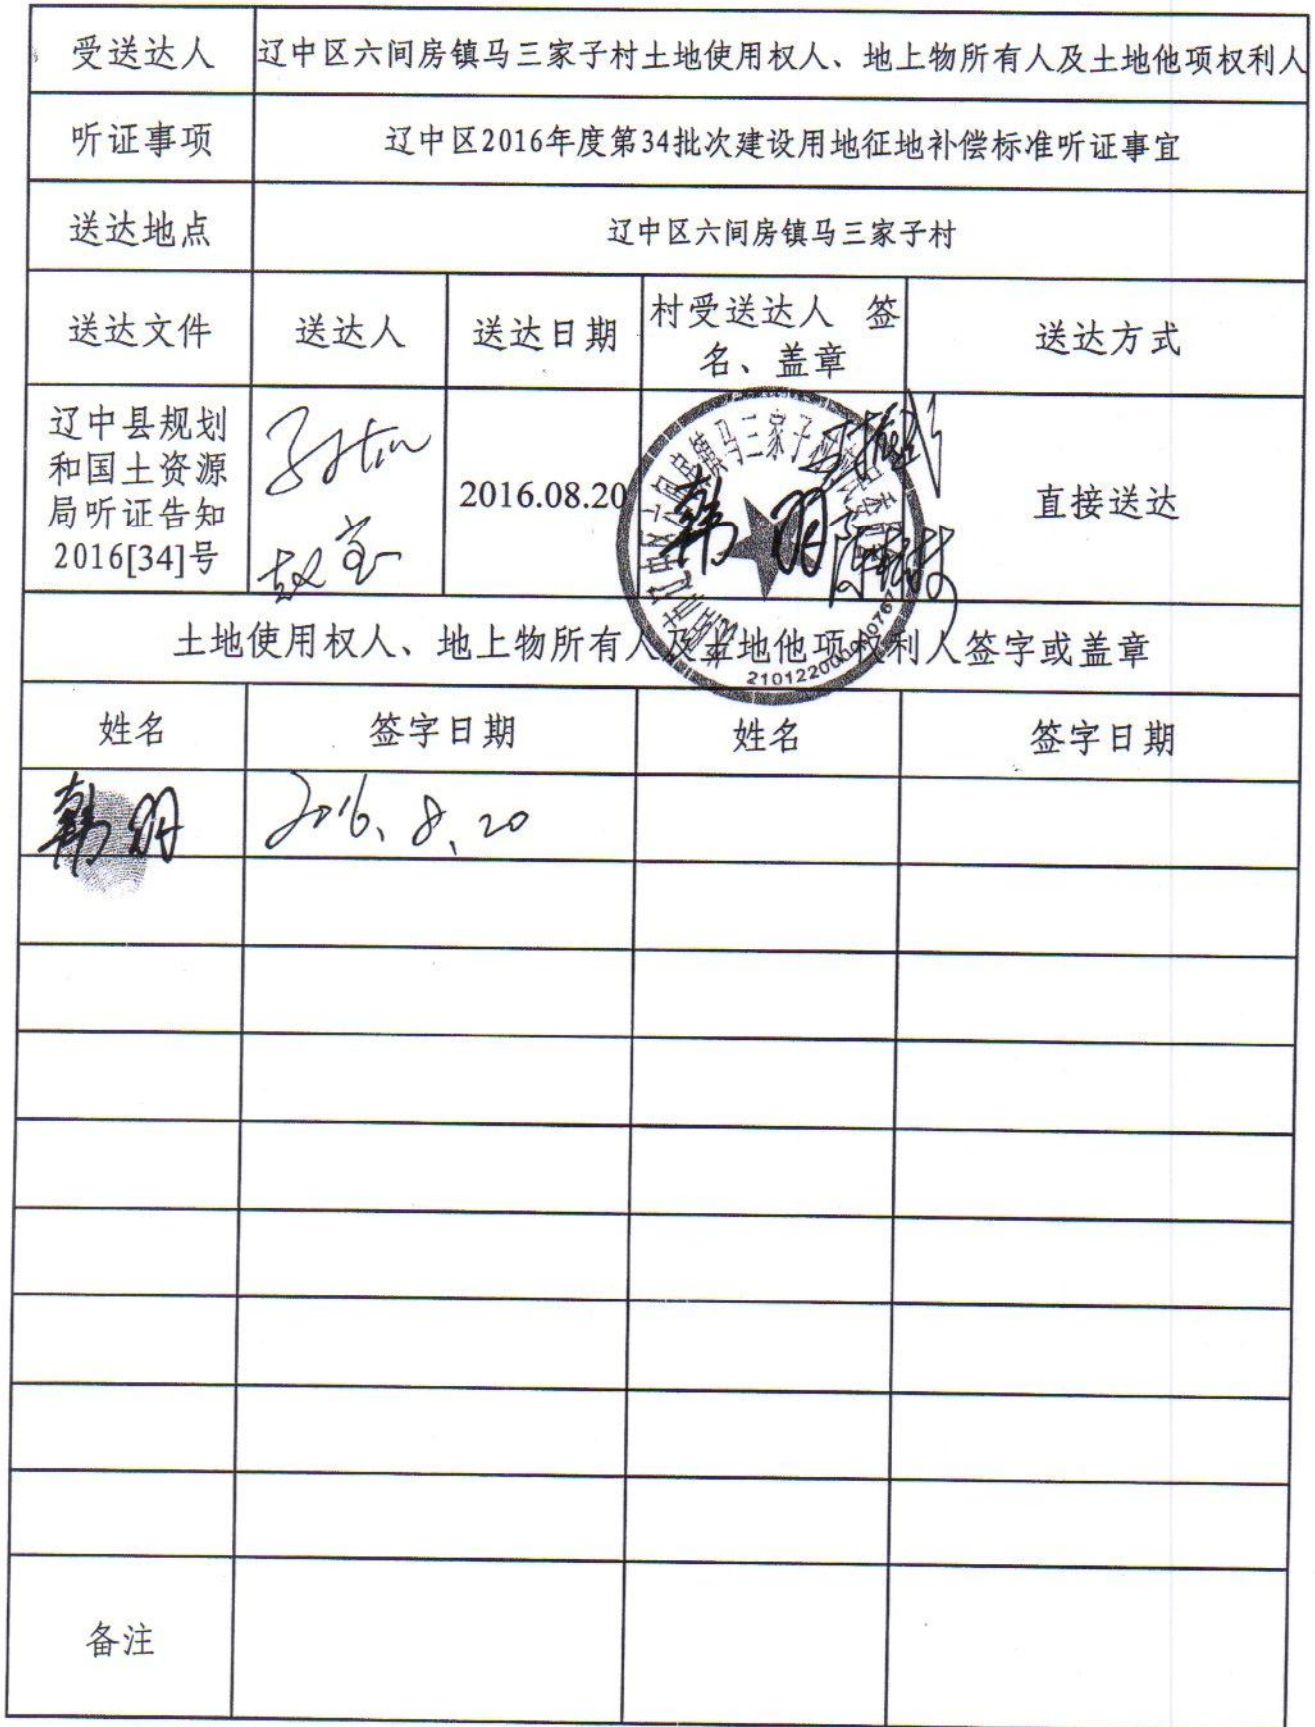 受送达人 辽中区六间房镇马三家子村土地使用权人、地上物所有人及土地他项权利人
听证事项 辽中区2016年度第34批次建设用地征地补偿标准听证事宜
送达地点 辽中区六间房镇马三家子村
送达文件 送达人 送达日期 村受送达人 签
名、盖章 送达方式
辽中县规划
和国土资源
局听证告知
2016[34]号
2016.08.20
韩明
直接送达
土地使用权人、地上物所有人及土地他项权利人签字或盖章
姓名 签字日期 姓名 签字日期
韩明 2016.8.20
备注